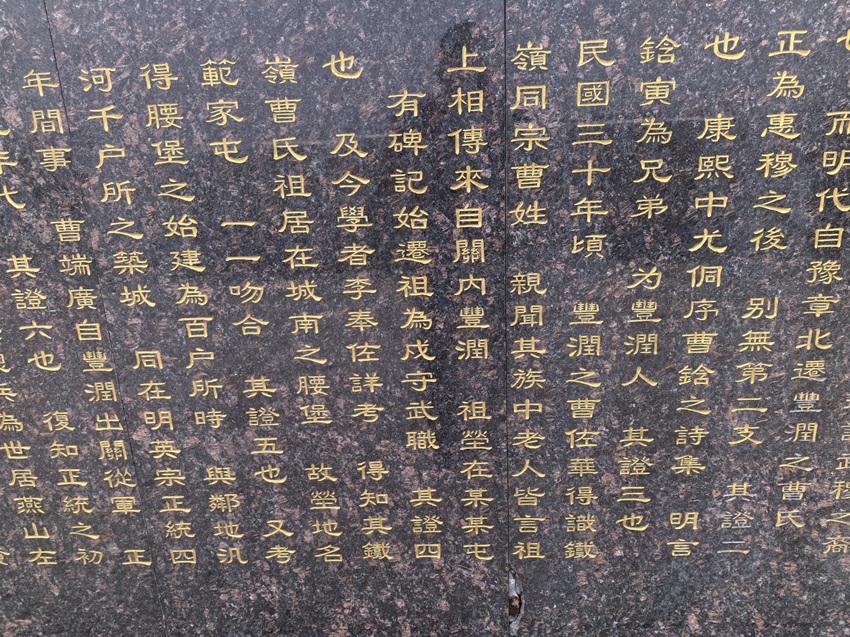 武穆之裔
也 而明代自豫章北還豐潤之曹氏
正為惠穆之後 别無第二支 其證二
也 康熙中尤侗序曹鋡之詩集 明言
鋡寅為兄弟 为豐潤人 其證三也
民國三十年頃 豐潤之曹佐華得識鐵
嶺同宗曹姓 親聞其族中老人皆言祖
上相傳來自關内豐潤 祖塋在某某屯
有碑記始遷祖為戍守武職 其證四
也 及今學者李奉佐詳考 得知其鐵
嶺曹氏祖居在城南之腰堡 故塋地名
範家屯 一一吻合 其證五也 又考
得腰堡之始建為百户所時 與鄰地汎
河千户所之築城 同在明英宗正統四
年間事 曹端廣自豐潤出關從軍 正
年代 其證六也 復知正統之初
兵為世居燕山左